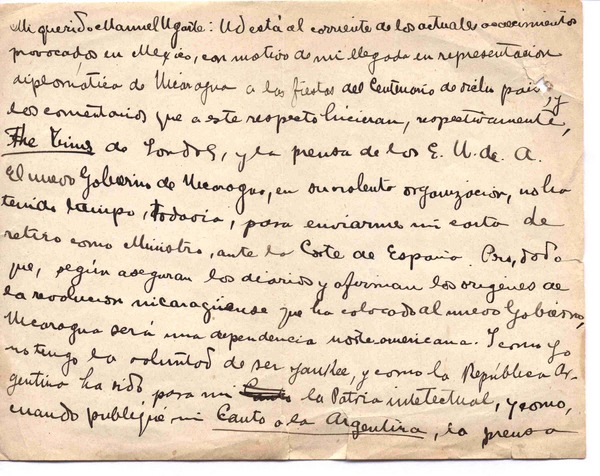 Mi querido Manuel Ugarte: Ud está al corriente de los actuales acaecimientos
provocados en México, con motivo de mi llegada en representación
diplomática de Nicaragua a las fiestas del Centenario de dicho país y
los comentarios que a este respecto hicieran, respectivamente,
The Times de Londres, y la prensa de los E. U. de A.
El nuevo Gobierno de Nicaragua, en su violenta organización, no ha
tenido tiempo, todavía, para enviarme mi carta de
retiro como Ministro, ante la Corte de España. Pero, dado
que, según aseguran los diarios y afirman los orígenes de
la revolución nicaragüense que ha colocado al nuevo Gobierno,
Nicaragua será una dependencia norteamericana. Y como yo
no tengo la voluntad de ser yankee, y como la República Ar-
gentina ha sido para mi la Patria intelectual, y como,
cuando publiqué mi Canto a la Argentina, la prensa